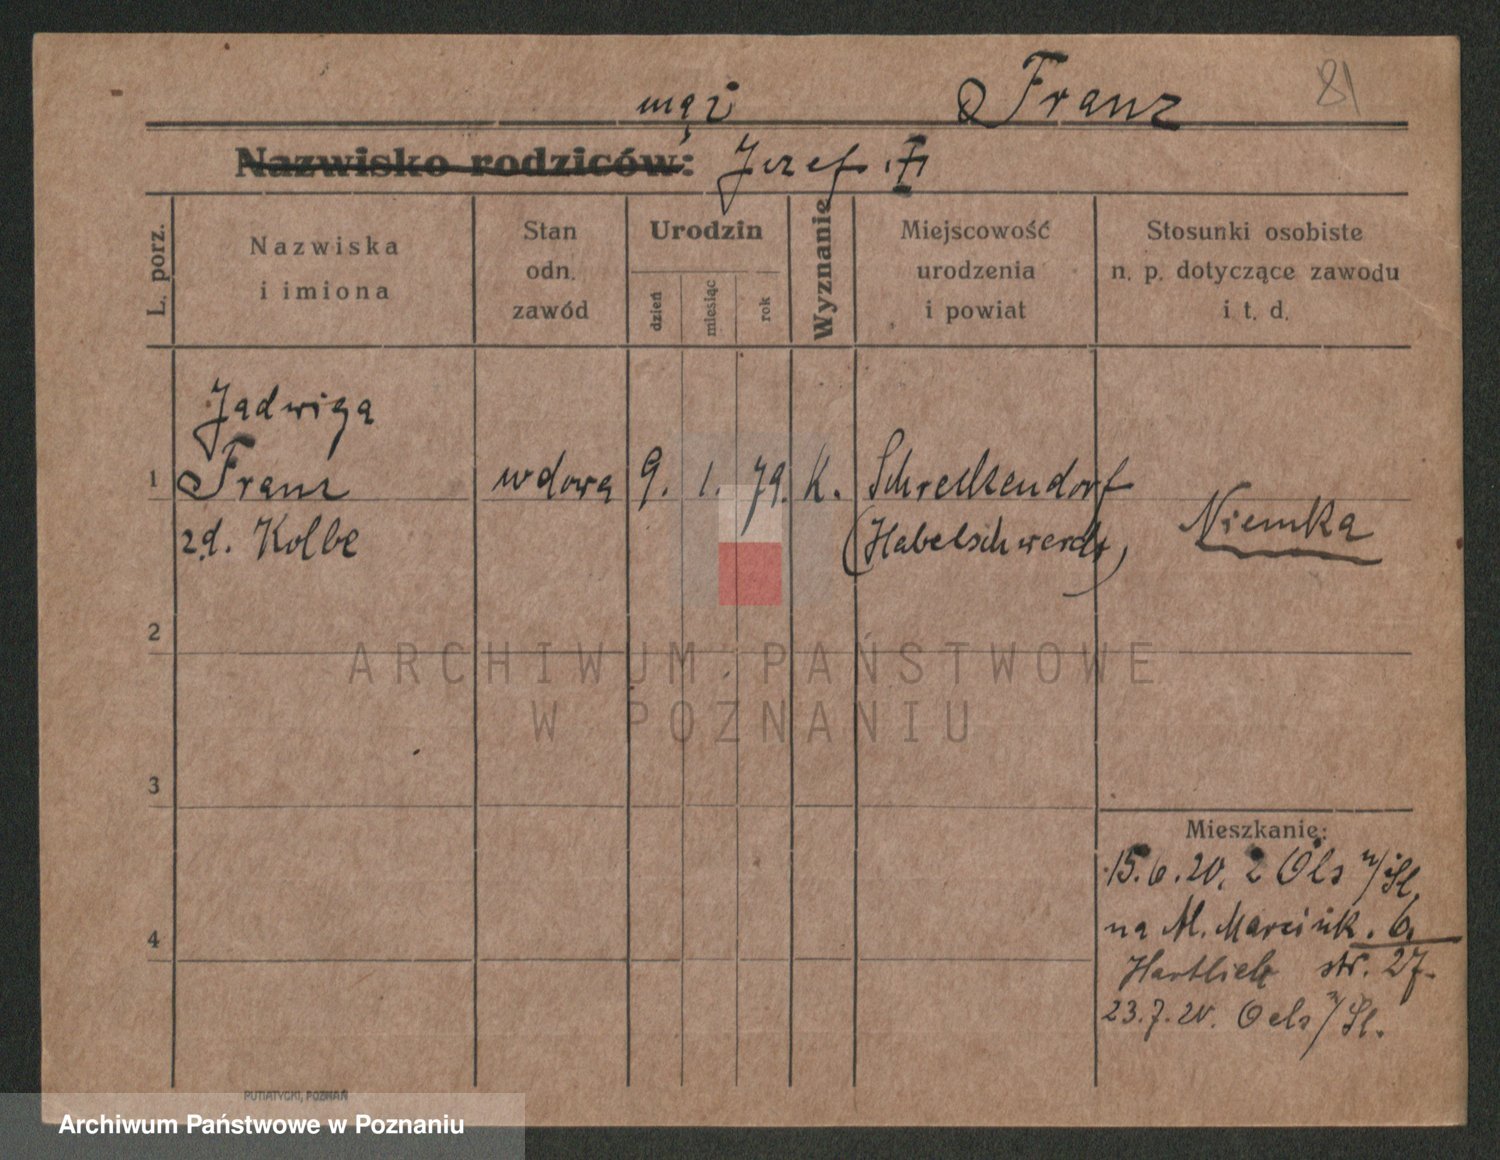 mąż Franz 81
Nazwisko rodziców: Jozef. †
L. porz.
Nazwiska
i imiona
Stan
odn.
zawód
Urodzin
dzień
miesiąc
rok
Wyznanie
Miejscowość
urodzenia
i powiat
Stosunki osobiste
n. p. dotyczące zawodu
i t. d.
Jadwiga
1 Franz wdowa 9. 1. 79. k. Schreckendorf
zd. Kolbe (Habelschwerdt) Niemka
2
3
4
Mieszkanie:
15.6.20. z Öls n/Sl.
na Al. Marcink. 6.
Hartlieb str. 27.
23.7.20. Oels n/Sl.
PUTIATYCKI, POZNAŃ
ARCHIWUM PAŃSTWOWE
W POZNANIU
Archiwum Państwowe w Poznaniu